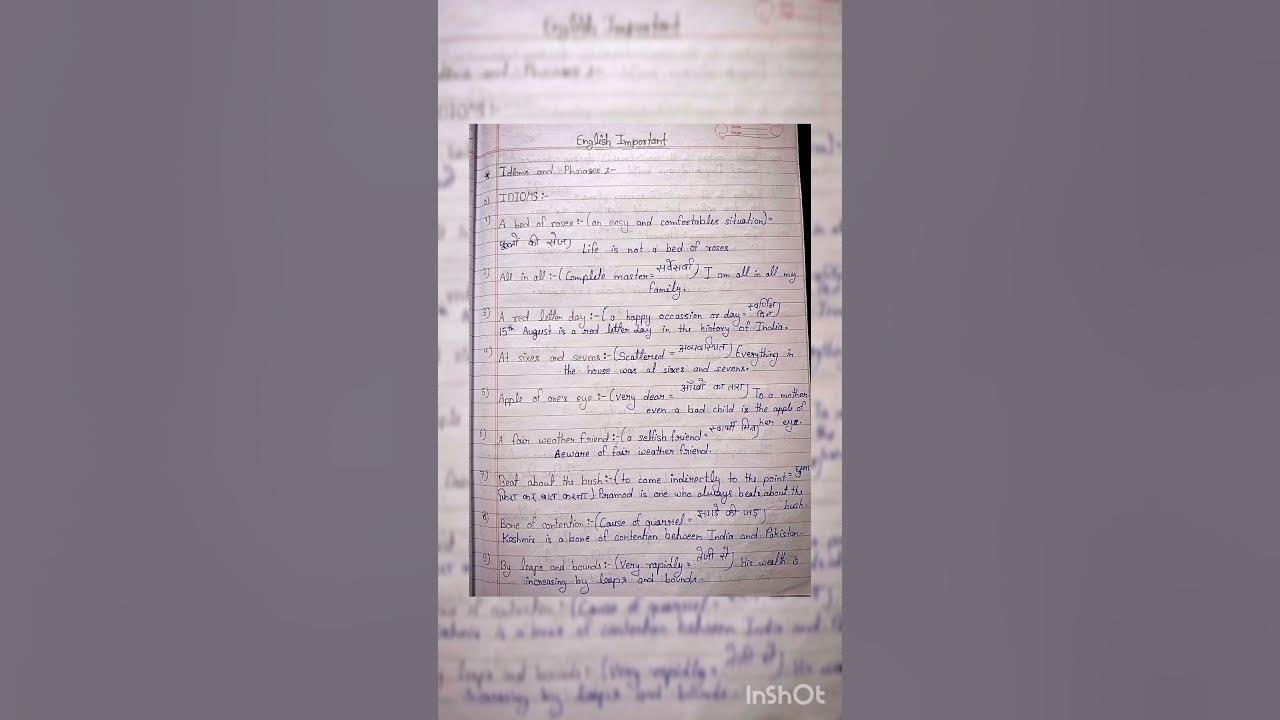 English Important
Date
Page
* Idioms and Phrases :-
a) IDIOMS :-
1) A bed of roses :- (an easy and comfortables situation) =
फूलों की सेज) Life is not a bed of roses
2) All in all :- (Complete master = सर्वेसर्वा) I am all in all my
family.
3) A red letter day :- (a happy occassion or day = स्वर्णिम दिन)
15th August is a red letter day in the history of India.
4) At sixes and sevens :- (Scattered = अव्यवस्थित) Everything in
the house was at sixes and sevens.
5) Apple of one's eye :- (very dear = आँखों का तारा) To a mother
even a bad child is the apple of
her eye.
6) A fair weather friend :- (a selfish friend = स्वार्थी मित्र)
Beware of fair weather friend.
7) Beat about the bush :- (to come indirectly to the point = घुमा
फिरा कर बात करना) Pramod is one who always beats about the
bush.
8) Bone of contention :- (Cause of quarrel = झगड़े की जड़)
Kashmir is a bone of contention between India and Pakistan.
9) By leaps and bounds :- (Very rapidly = तेजी से) His wealth is
increasing by leaps and bounds.
InShOt